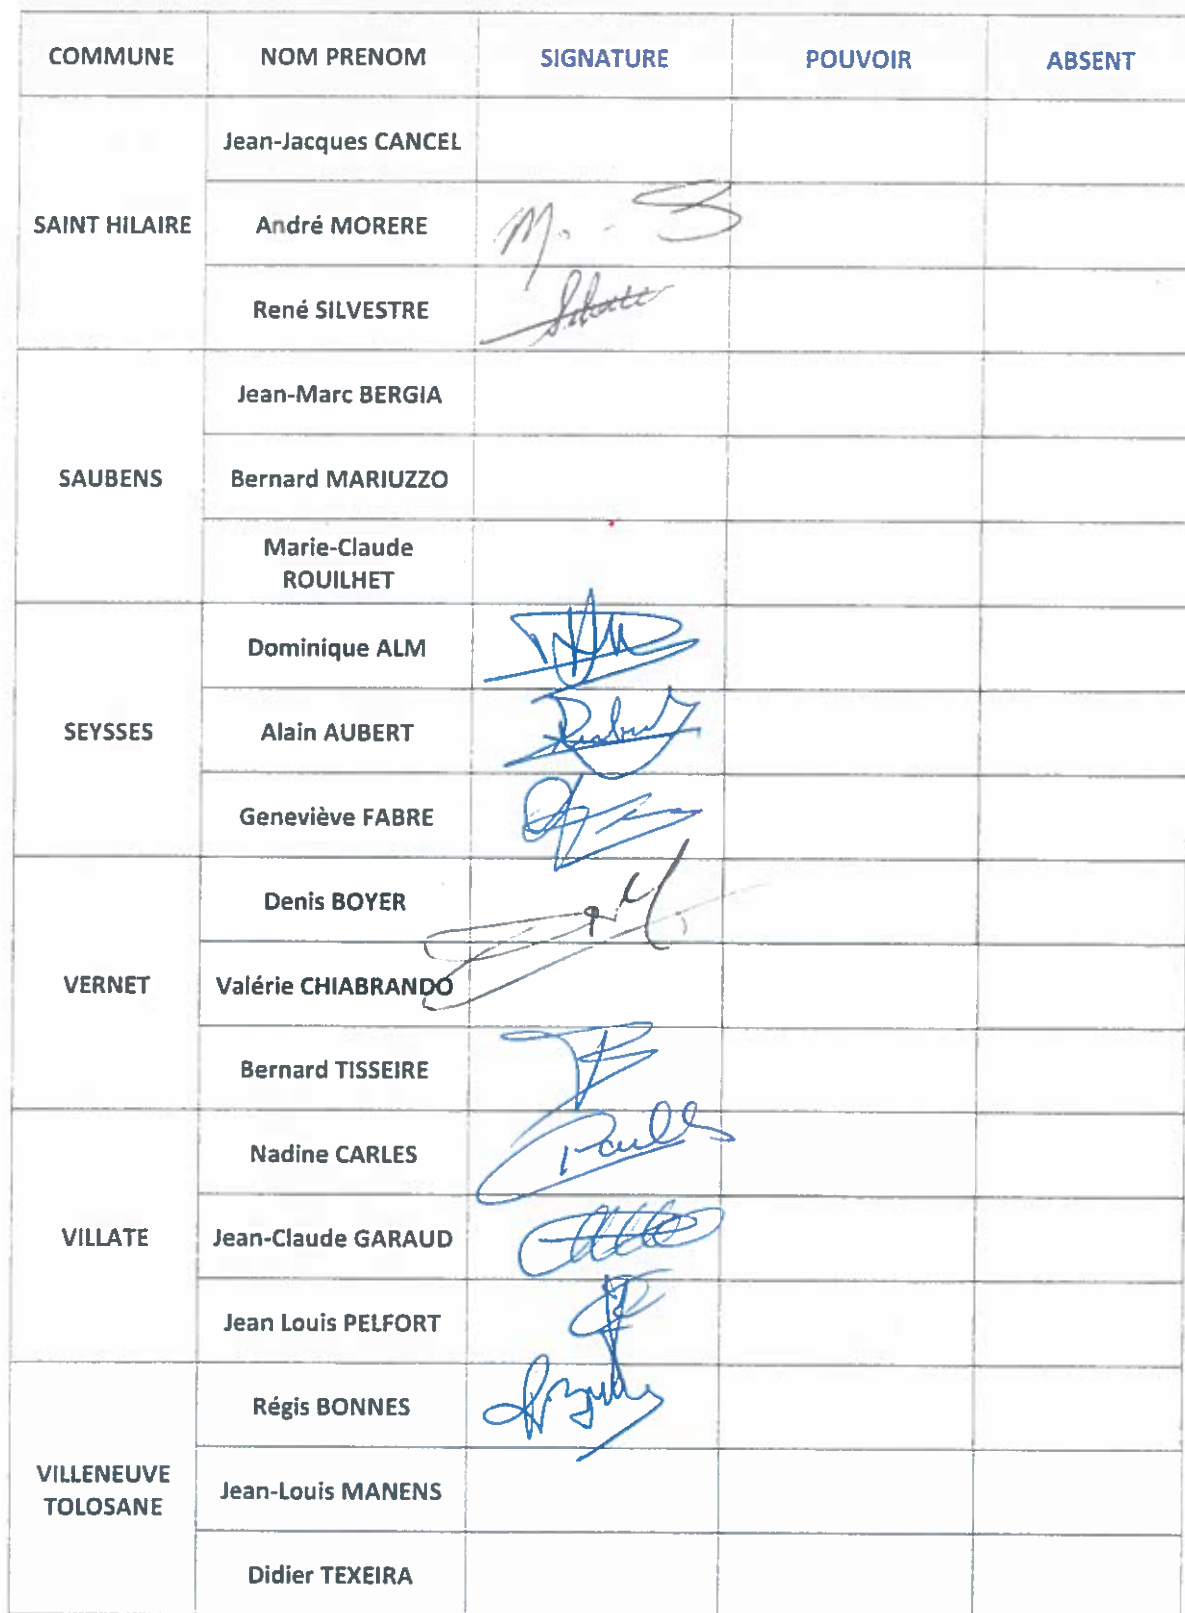 COMMUNE NOM PRENOM SIGNATURE POUVOIR ABSENT
SAINT HILAIRE
Jean-Jacques CANCEL
André MORERE
René SILVESTRE
SAUBENS
Jean-Marc BERGIA
Bernard MARIUZZO
Marie-Claude
ROUILHET
SEYSSES
Dominique ALM
Alain AUBERT
Geneviève FABRE
VERNET
Denis BOYER
Valérie CHIABRANDO
Bernard TISSEIRE
VILLATE
Nadine CARLES
Jean-Claude GARAUD
Jean Louis PELFORT
VILLENEUVE
TOLOSANE
Régis BONNES
Jean-Louis MANENS
Didier TEXEIRA